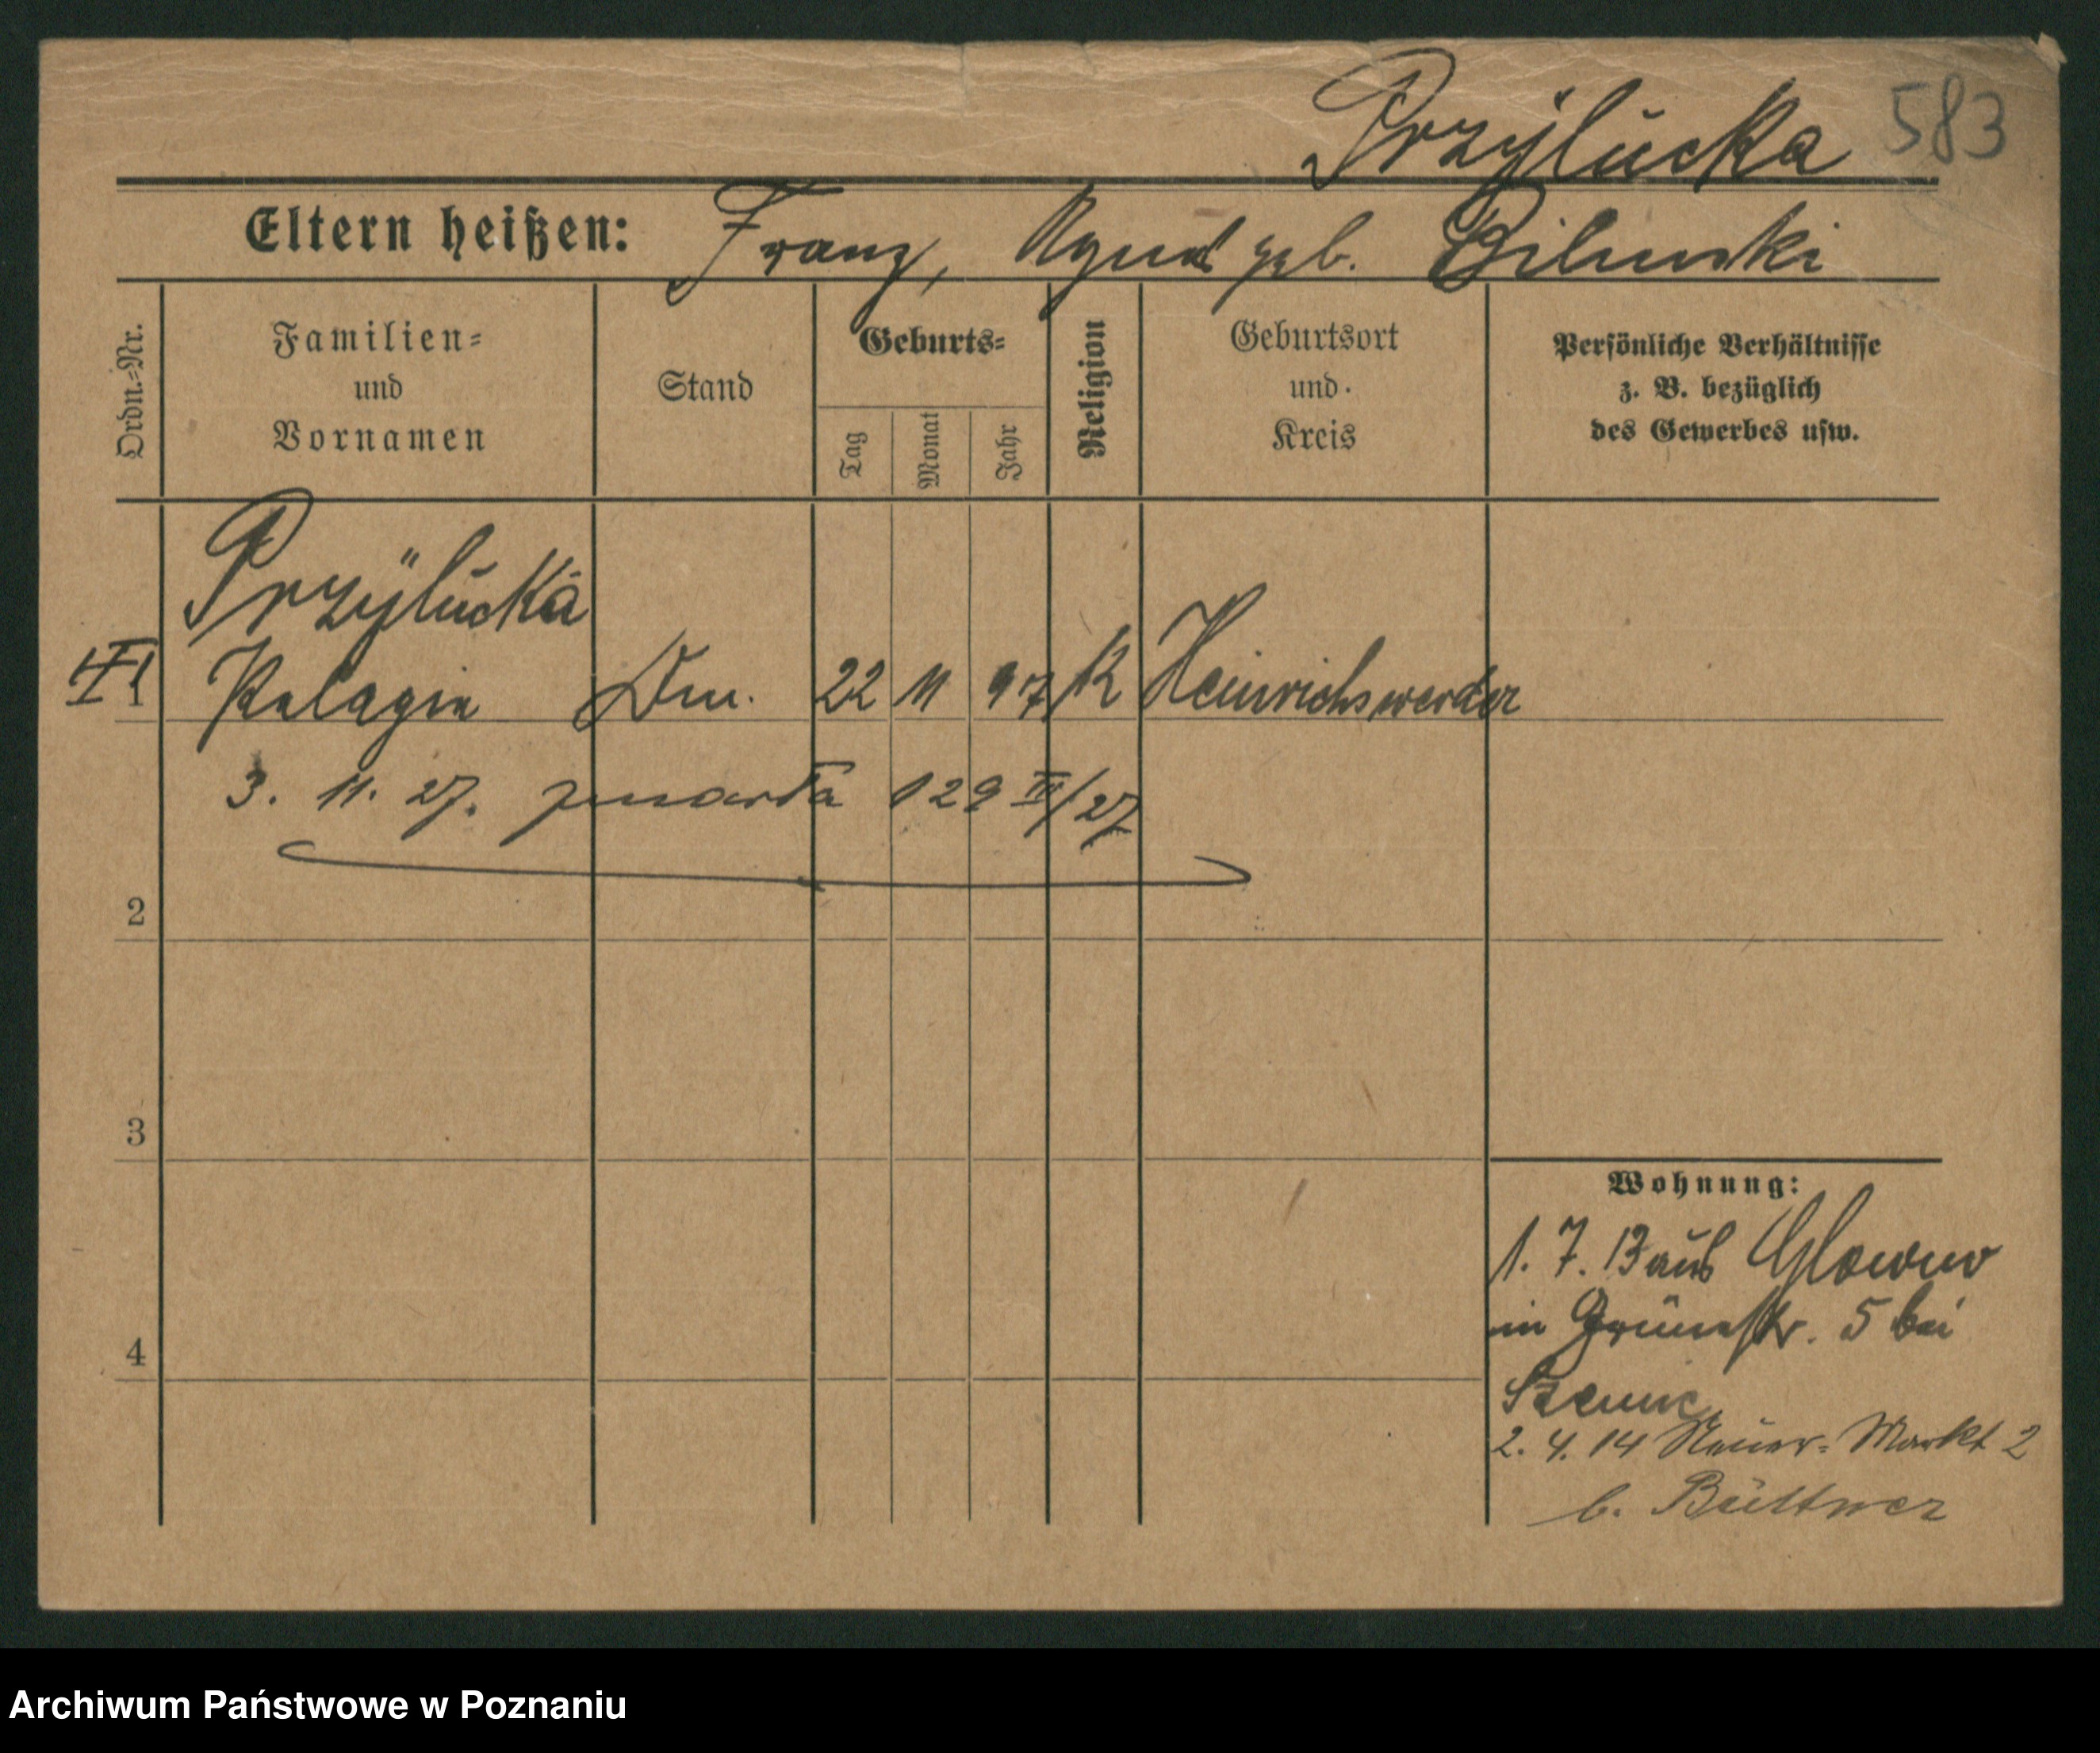 Przÿlucka 583
Eltern heißen: Franz, Agnes geb. Bilinski
Ordn.-Nr.
Familien-
und
Vornamen
Stand
Geburts-
Tag
Monat
Jahr
Religion
Geburtsort
und
Kreis
Persönliche Verhältnisse
z. B. bezüglich
des Gewerbes usw.
Przÿlucka
1 Pelagia Dm. 22 11 97 K Heinrichswerder
3. 11. 27. zmarła 129 III/27
2
3
4
Wohnung:
1. 7. 13 aus Glowno
in Grünestr. 5 bei
2. 4. 14 Neuer-Markt 2
b. Büttner
Archiwum Państwowe w Poznaniu